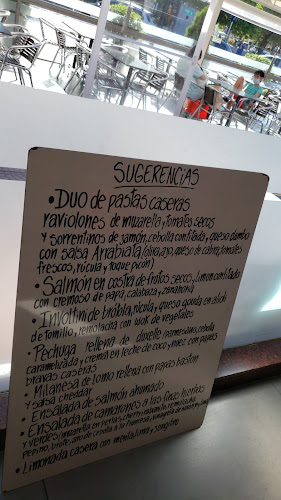 SUGERENCIAS
• DUO de pastas caseras
raviolones de muzarella y tomates secos
y sorrentinos de jamón, cebolla confitada y queso dambo
con salsa Arrabiata (oliva, ajo, queso de cabra, tomates
frescos, rúcula y toque picón)
• Salmón en costra de frutos secos y limon confitado
con cremoso de papa, calabaza y zanahoria
• Involtini de bróbla, rúcula y queso gouda en aioli
de tomillo, remolacha con wok de vegetales
• Pechuga rellena de duxelle parmesano, cebolla
caramelizada y crema en leche de coco y nuez con papas
bravas caseras
• Milanesa de lomo rellena con papas baston
y salsa cheddar
• Ensalada de salmón ahumado
• Ensalada de camarones a las finas hierbas
y verdes
• Limonada casera con menta y jengibre